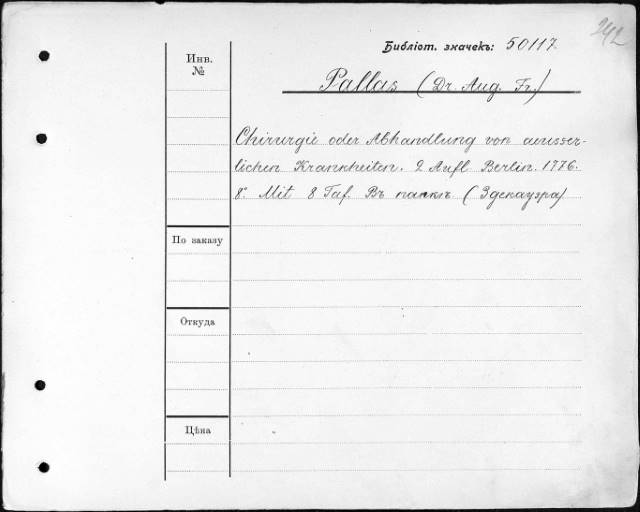 242
Библіот. значекъ: 50117.
Инв.
№
Pallas (Dr. Aug. Fr.)
Chirurgie oder Abhandlung von aeusser-
lichen Krankheiten. 2 Aufl. Berlin. 1776.
8°. Mit 8 Taf. Въ папкѣ (Здекауэра)
По заказу
Откуда
Цѣна